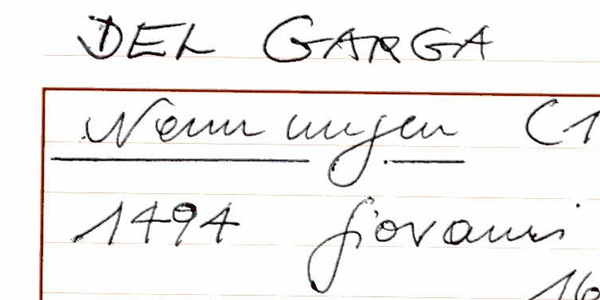 DEL GARGA
Nennungen C1
1494 Giovanni
16